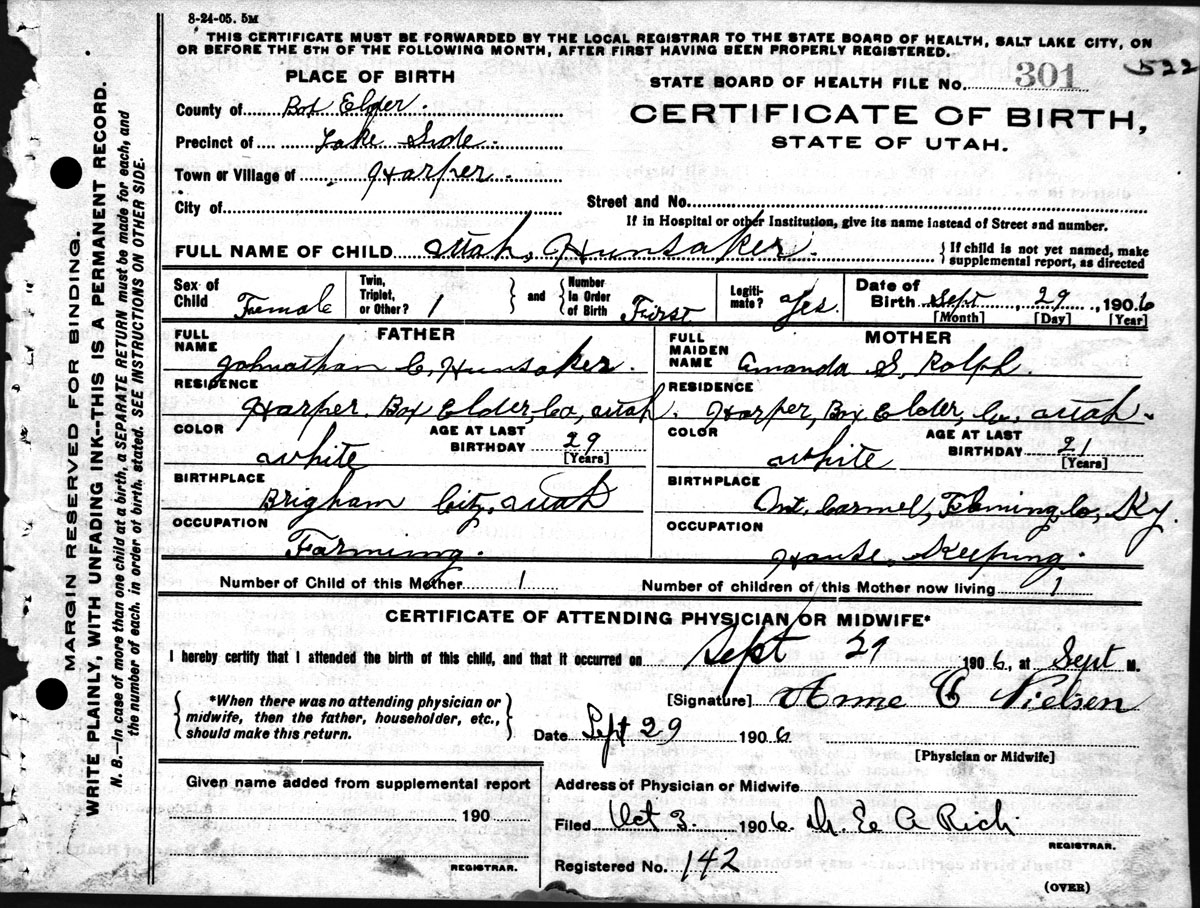 8-24-05. 5M
THIS CERTIFICATE MUST BE FORWARDED BY THE LOCAL REGISTRAR TO THE STATE BOARD OF HEALTH, SALT LAKE CITY, ON
OR BEFORE THE 5TH OF THE FOLLOWING MONTH, AFTER FIRST HAVING BEEN PROPERLY REGISTERED.
522
PLACE OF BIRTH
STATE BOARD OF HEALTH FILE No. 301
County of Box Elder.
CERTIFICATE OF BIRTH,
STATE OF UTAH.
Precinct of Lake Side.
Town or Village of Harper.
City of
Street and No.
If in Hospital or other Institution, give its name instead of Street and number.
FULL NAME OF CHILD Utah, Hunsaker.
{If child is not yet named, make
supplemental report, as directed
Sex of Child Female
Twin, Triplet, or Other? 1
} and {
Number In Order of Birth First
Legiti-mate? Yes.
Date of Birth Sept, 29, 1906
[Month] [Day] [Year]
FATHER
FULL NAME Johnathan C, Hunsaker.
RESIDENCE
Harper. Box Elder, Co, Utah.
COLOR white
AGE AT LAST BIRTHDAY 29
[Years]
BIRTHPLACE
Brigham City, Utah
OCCUPATION
Farming.
MOTHER
FULL MAIDEN NAME Amanda S, Rolph.
RESIDENCE
Harper, Box Elder, Co, Utah.
COLOR white
AGE AT LAST BIRTHDAY 21
[Years]
BIRTHPLACE
Mt. Carmel, Fleming Co, Ky.
OCCUPATION
House, Keeping.
Number of Child of this Mother 1
Number of children of this Mother now living 1
CERTIFICATE OF ATTENDING PHYSICIAN OR MIDWIFE*
I hereby certify that I attended the birth of this child, and that it occurred on Sept 29 1906, at Sept M.
{*When there was no attending physician or
midwife, then the father, householder, etc.,
should make this return.}
[Signature] Anne C Nielsen
Date Sept 29 1906
[Physician or Midwife]
Given name added from supplemental report
190
REGISTRAR.
Address of Physician or Midwife
Filed Oct 3. 1906. Dr. E A Rich
REGISTRAR.
Registered No. 142
(OVER)
MARGIN RESERVED FOR BINDING.
WRITE PLAINLY, WITH UNFADING INK--THIS IS A PERMANENT RECORD.
N. B.—In case of more than one child at a birth, a SEPARATE RETURN must be made for each, and
the number of each, in order of birth, stated. SEE INSTRUCTIONS ON OTHER SIDE.